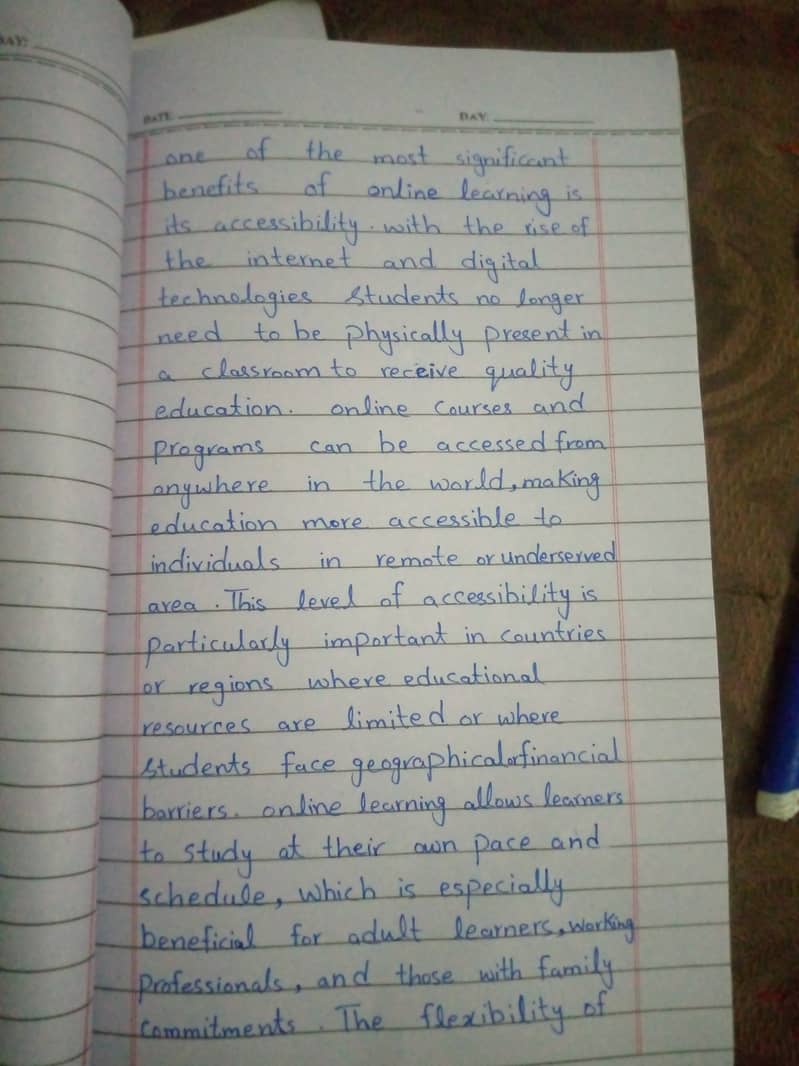 DAY:
DATE DAY:
one of the most significant
benefits of online learning is
its accessibility. with the rise of
the internet and digital
technologies students no longer
need to be physically present in
a classroom to receive quality
education. online courses and
programs can be accessed from
anywhere in the world, making
education more accessible to
individuals in remote or underserved
area. This level of accessibility is
particularly important in countries
or regions where educational
resources are limited or where
students face geographical or financial
barriers. online learning allows learners
to study at their own pace and
schedule, which is especially
beneficial for adult learners, working
professionals, and those with family
commitments. The flexibility of